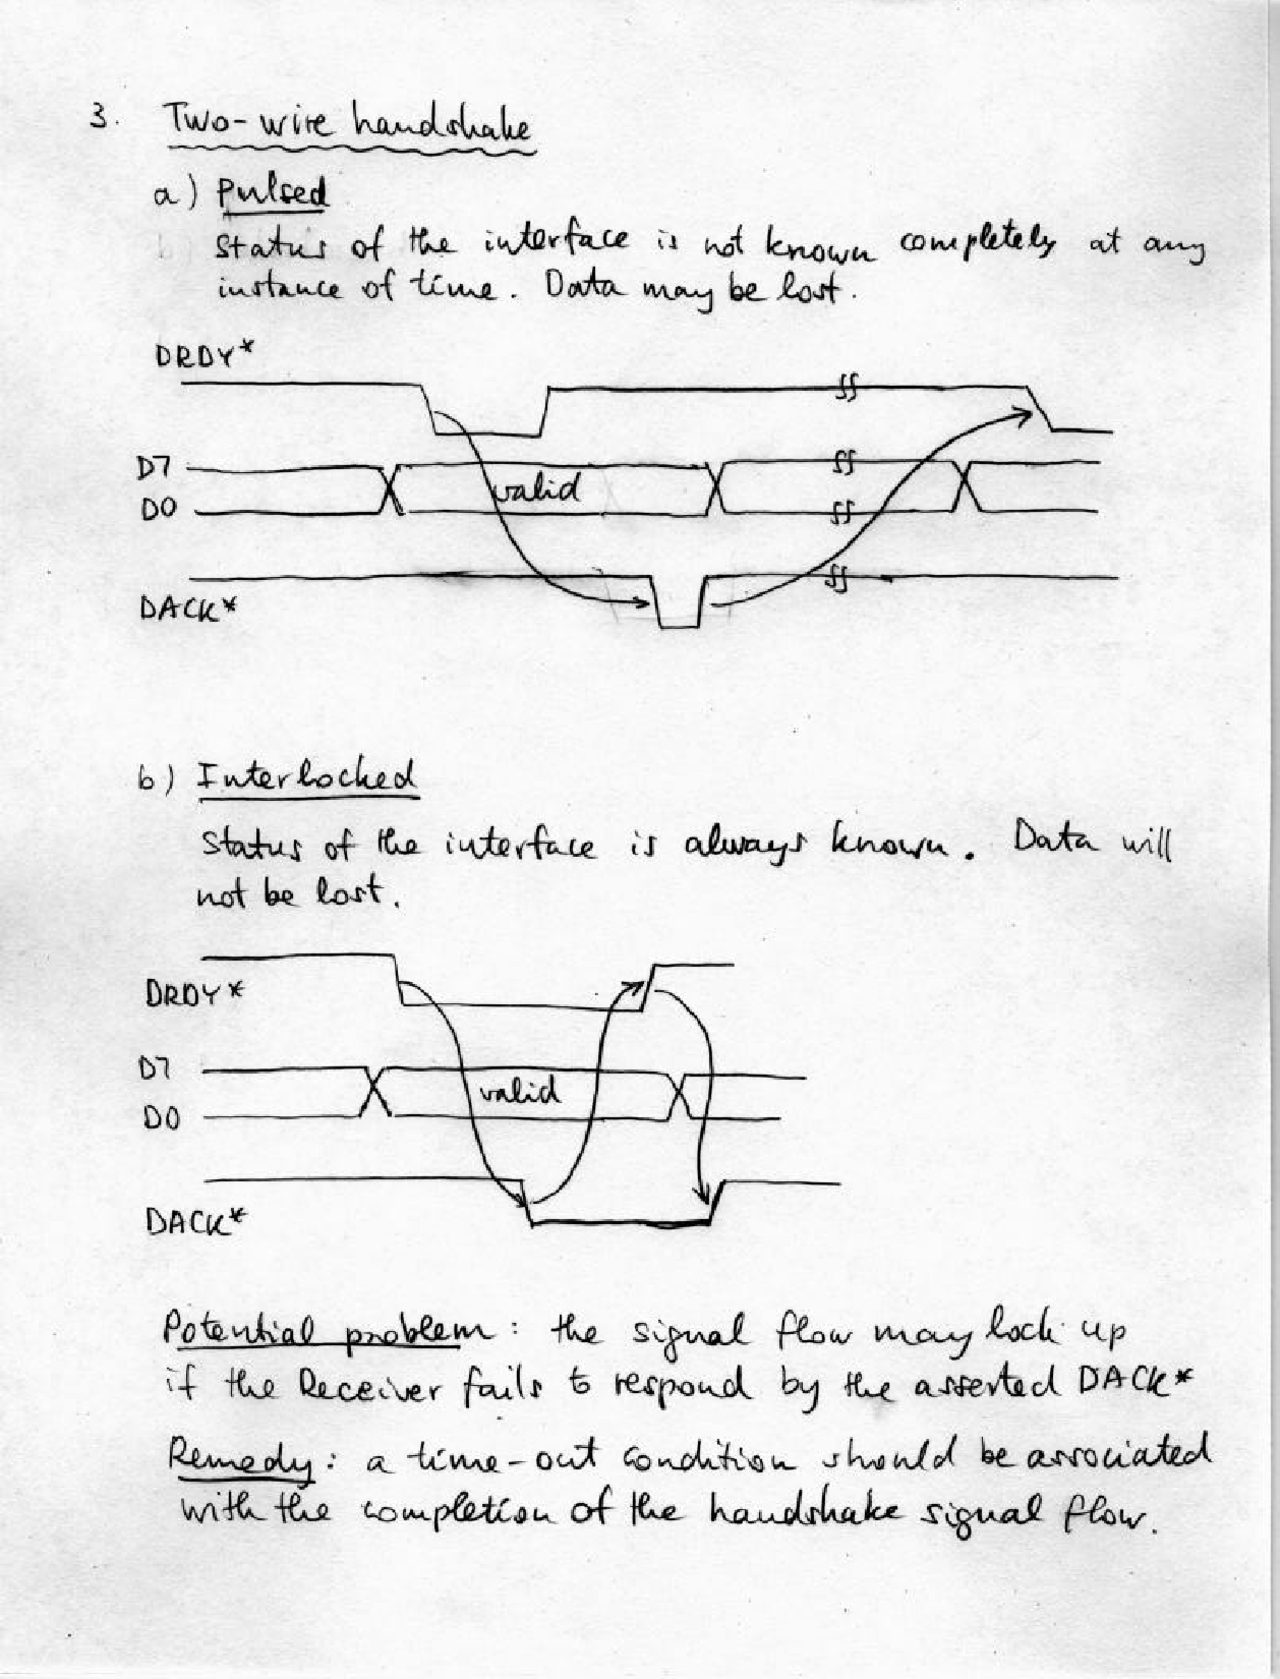 3. Two-wire handshake
a) Pulsed
Status of the interface is not known completely at any
instance of time. Data may be lost.
DRDY*
D7
valid
D0
DACK*
b) Interlocked
Status of the interface is always known. Data will
not be lost.
DRDY*
D7
valid
D0
DACK*
Potential problem: the signal flow may lock up
if the Receiver fails to respond by the asserted DACK*
Remedy: a time-out condition should be associated
with the completion of the handshake signal flow.